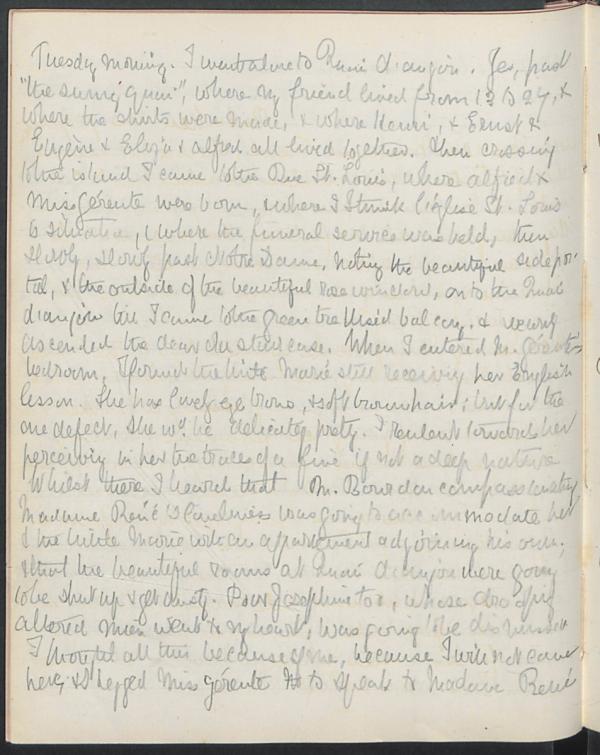 Tuesday morning. I went alone to Quai d'anjou. Yes, past
"the sunny quai", where my friend lived from 12 to 24, &
where the shirts were made, & where Henri, & Ernest &
Eugène & Eliza & alfred all lived together. Then crossing
to the island I came to the Rue St. Louis, where alfred &
Miss gérente were born, where I think l'Eglise St. Louis
is situated, & where the funeral service was held, then
slowly, slowly past Notre Dame, noting the beautiful side por-
tal, & the outside of the beautiful rose window, on to the Quai
d'anjou till I came to the green balcony, &
ascended the dear staircase. When I entered M. gérente's
bedroom, I found the little Marie still receiving her English
lesson. She has lovely eye brows, & soft brown hair; but for the
one defect, she wd. be delicately pretty. I towards her
perceiving in her the traces of a fine if not a deep nature
Whilst there I heard that M. Bourdon compassionating
Madame René's was going to accommodate her
& the little Marie with an apartment adjoining his own;
& that the beautiful rooms at Quai d'anjou were going
to be shut up & get dusty. Poor Josephine too, whose drooping
altered mien went to my heart, was going to be dismissed
I thought all this because of me, because I will not come
here, & I begged Miss gérente to speak to Madame René